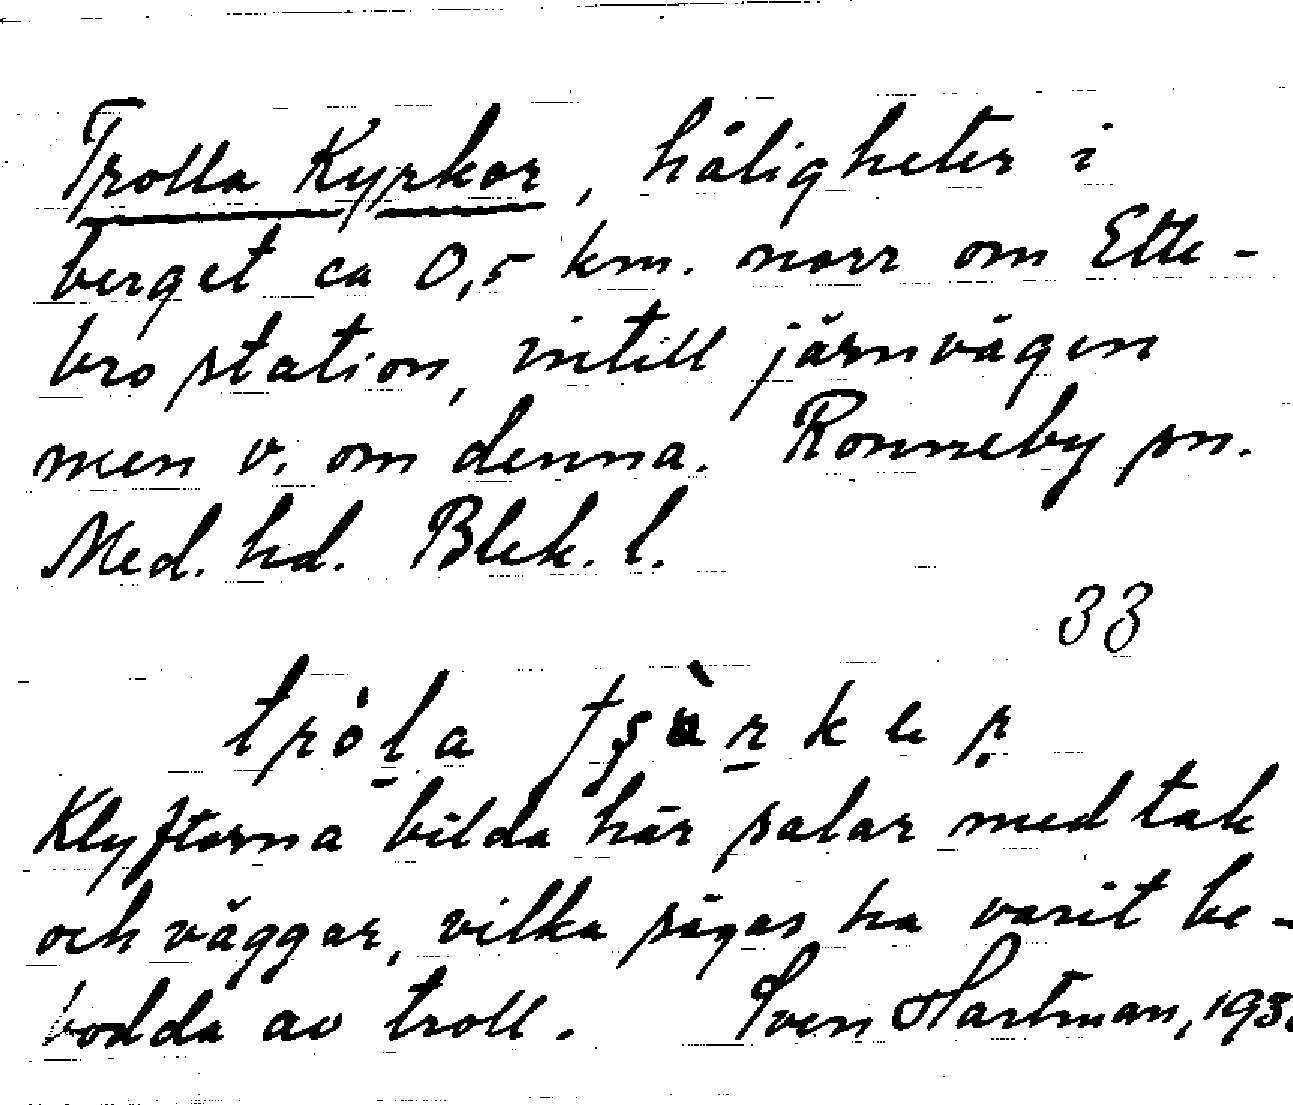 Trolla Kyrkor, håligheter i
berget ca 0,5 km. norr om Ette-
bro station, intill järnvägen
men v. om denna. Ronneby sn.
Med. hd. Blek. l.
33
Klyftorna bilda här salar med tak
och väggar, vilka sägas ha varit be-
bodda av troll. Sven Hartman, 193